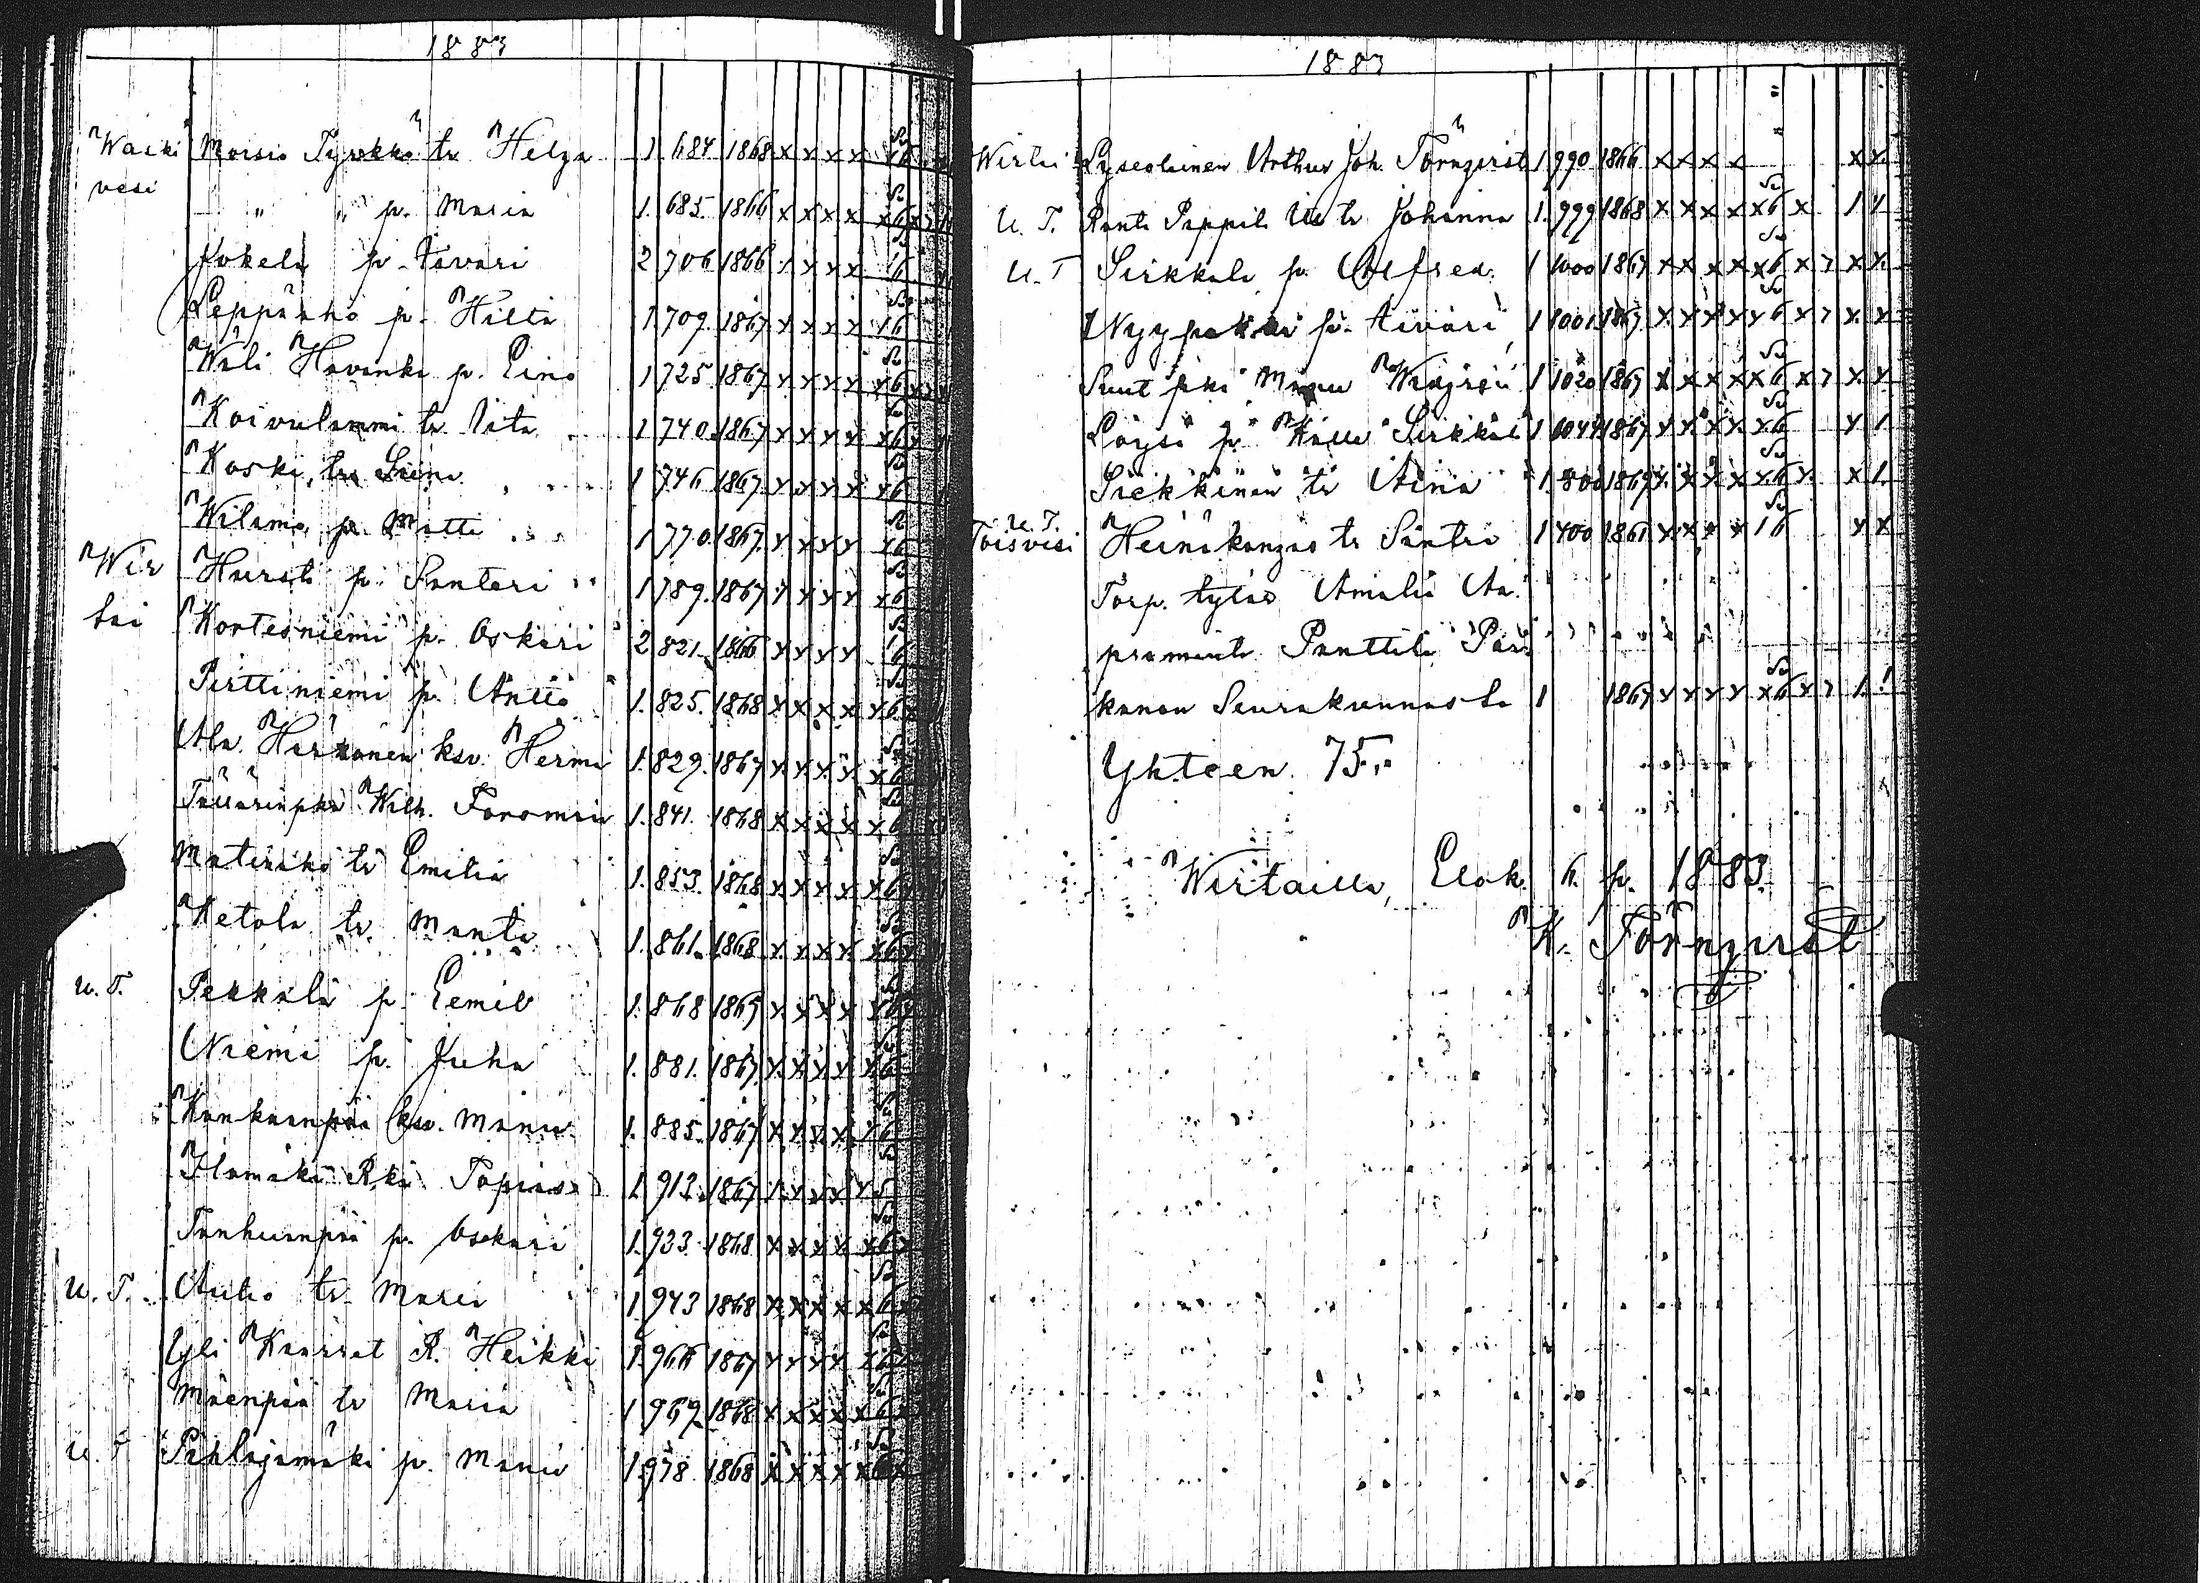 1883
Waski Moisio Tyrkkö tr Helga 1 684 1868 x x x x
vesi " " p. Maria 1. 685. 1866 x x x x x6 x
Kokela p. Iivari 2 706 1866 x x x x 16
Leppäaho p. Hilta 1 709. 1867 x x x x 16
Wäli Havanka p. Eino 1 725 1867 x x x x x6
Koivulammi tr. Iita 1 740. 1867 x x x x x6
Koski, tr. 1 746 1867 x x x x x6
Wilamo, p. Matti 1 770. 1867 x x x x x6
Wir Hursti p. Santeri 1 789. 1867 x x x x x6
tai Kortesniemi p. Oskari 2 821. 1866 x x x x 16
Perttiniemi p. Antto 1. 825. 1868 x x x x x6
Ala Herranen ksv. Hermi 1. 829. 1867 x x x x x6
Wilh. Foroman 1. 841. 1868 x x x x x6
tr Emilia 1. 853. 1868 x x x x x6
Ketola tr. Manta 1. 861. 1868 x x x x x6
U. T. Pekkala p. Eemil 1. 868 1865 x x x x x6
Niemi p. Juha 1. 881. 1867 x x x x x6
Kankaanpää ksv. Manu 1. 885. 1867 x x x x x6
Ilomäki Rki Topias 1. 913. 1867 x x x x x5
Tanhuanpää p. Oskari 1. 923. 1868 x x x x x6
U. T. Autio tr. Maria 1. 943 1868 x x x x x6
Yli Kaurat R. Heikki 1. 966 1867 x x x x x6
Mäenpää tr Maria 1 969 1868 x x x x x6
U. T Pihlajamäki p. Manu 1. 978 1868 x x x x x6
1883
Wirtai Lyseolainen Arthur Joh. Törnqvist 1 990. 1866 x x x x x x
U. T. Ranta Pappila tr Johanna 1. 999 1868 x x x x x6 x 1 1
U. T Sirkkala p. Alfred. 1 1000 1867 x x x x x6 x 7 x x
p. Iivari 1 1001 1867 x x x x x6 x 7 x x
Manu 1 1020 1867 x x x x x6 x 7 x x
Löysä p. Kalle Sirkkal 1 1044 1867 x x x x x6 x 1
Siekkinen tr Aina 1. 800 1869 x x x x x6 x. x 1.
U. T.
Toisvesi Heinäkangas tr Santra 1 400 1861 x x x x 16 x x
Torp. tytär Amalia An.
Panttila Par
kanon Seurakunnasta 1 1867 x x x x x6 x 7 1 1
Yhteen 75.
Wirtailla, Elok. 6. p. 1883.
K. Törnqvist